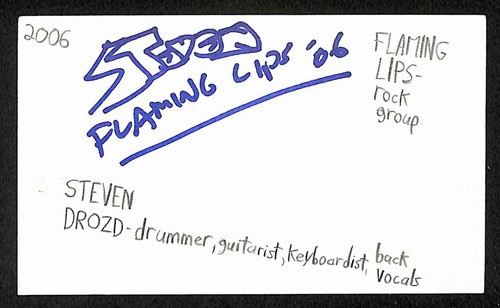 2006
STEVEN
FLAMING LIPS '06
FLAMING
LIPS-
rock
group.
STEVEN
DROZD-drummer, guitarist, keyboardist, back
vocals